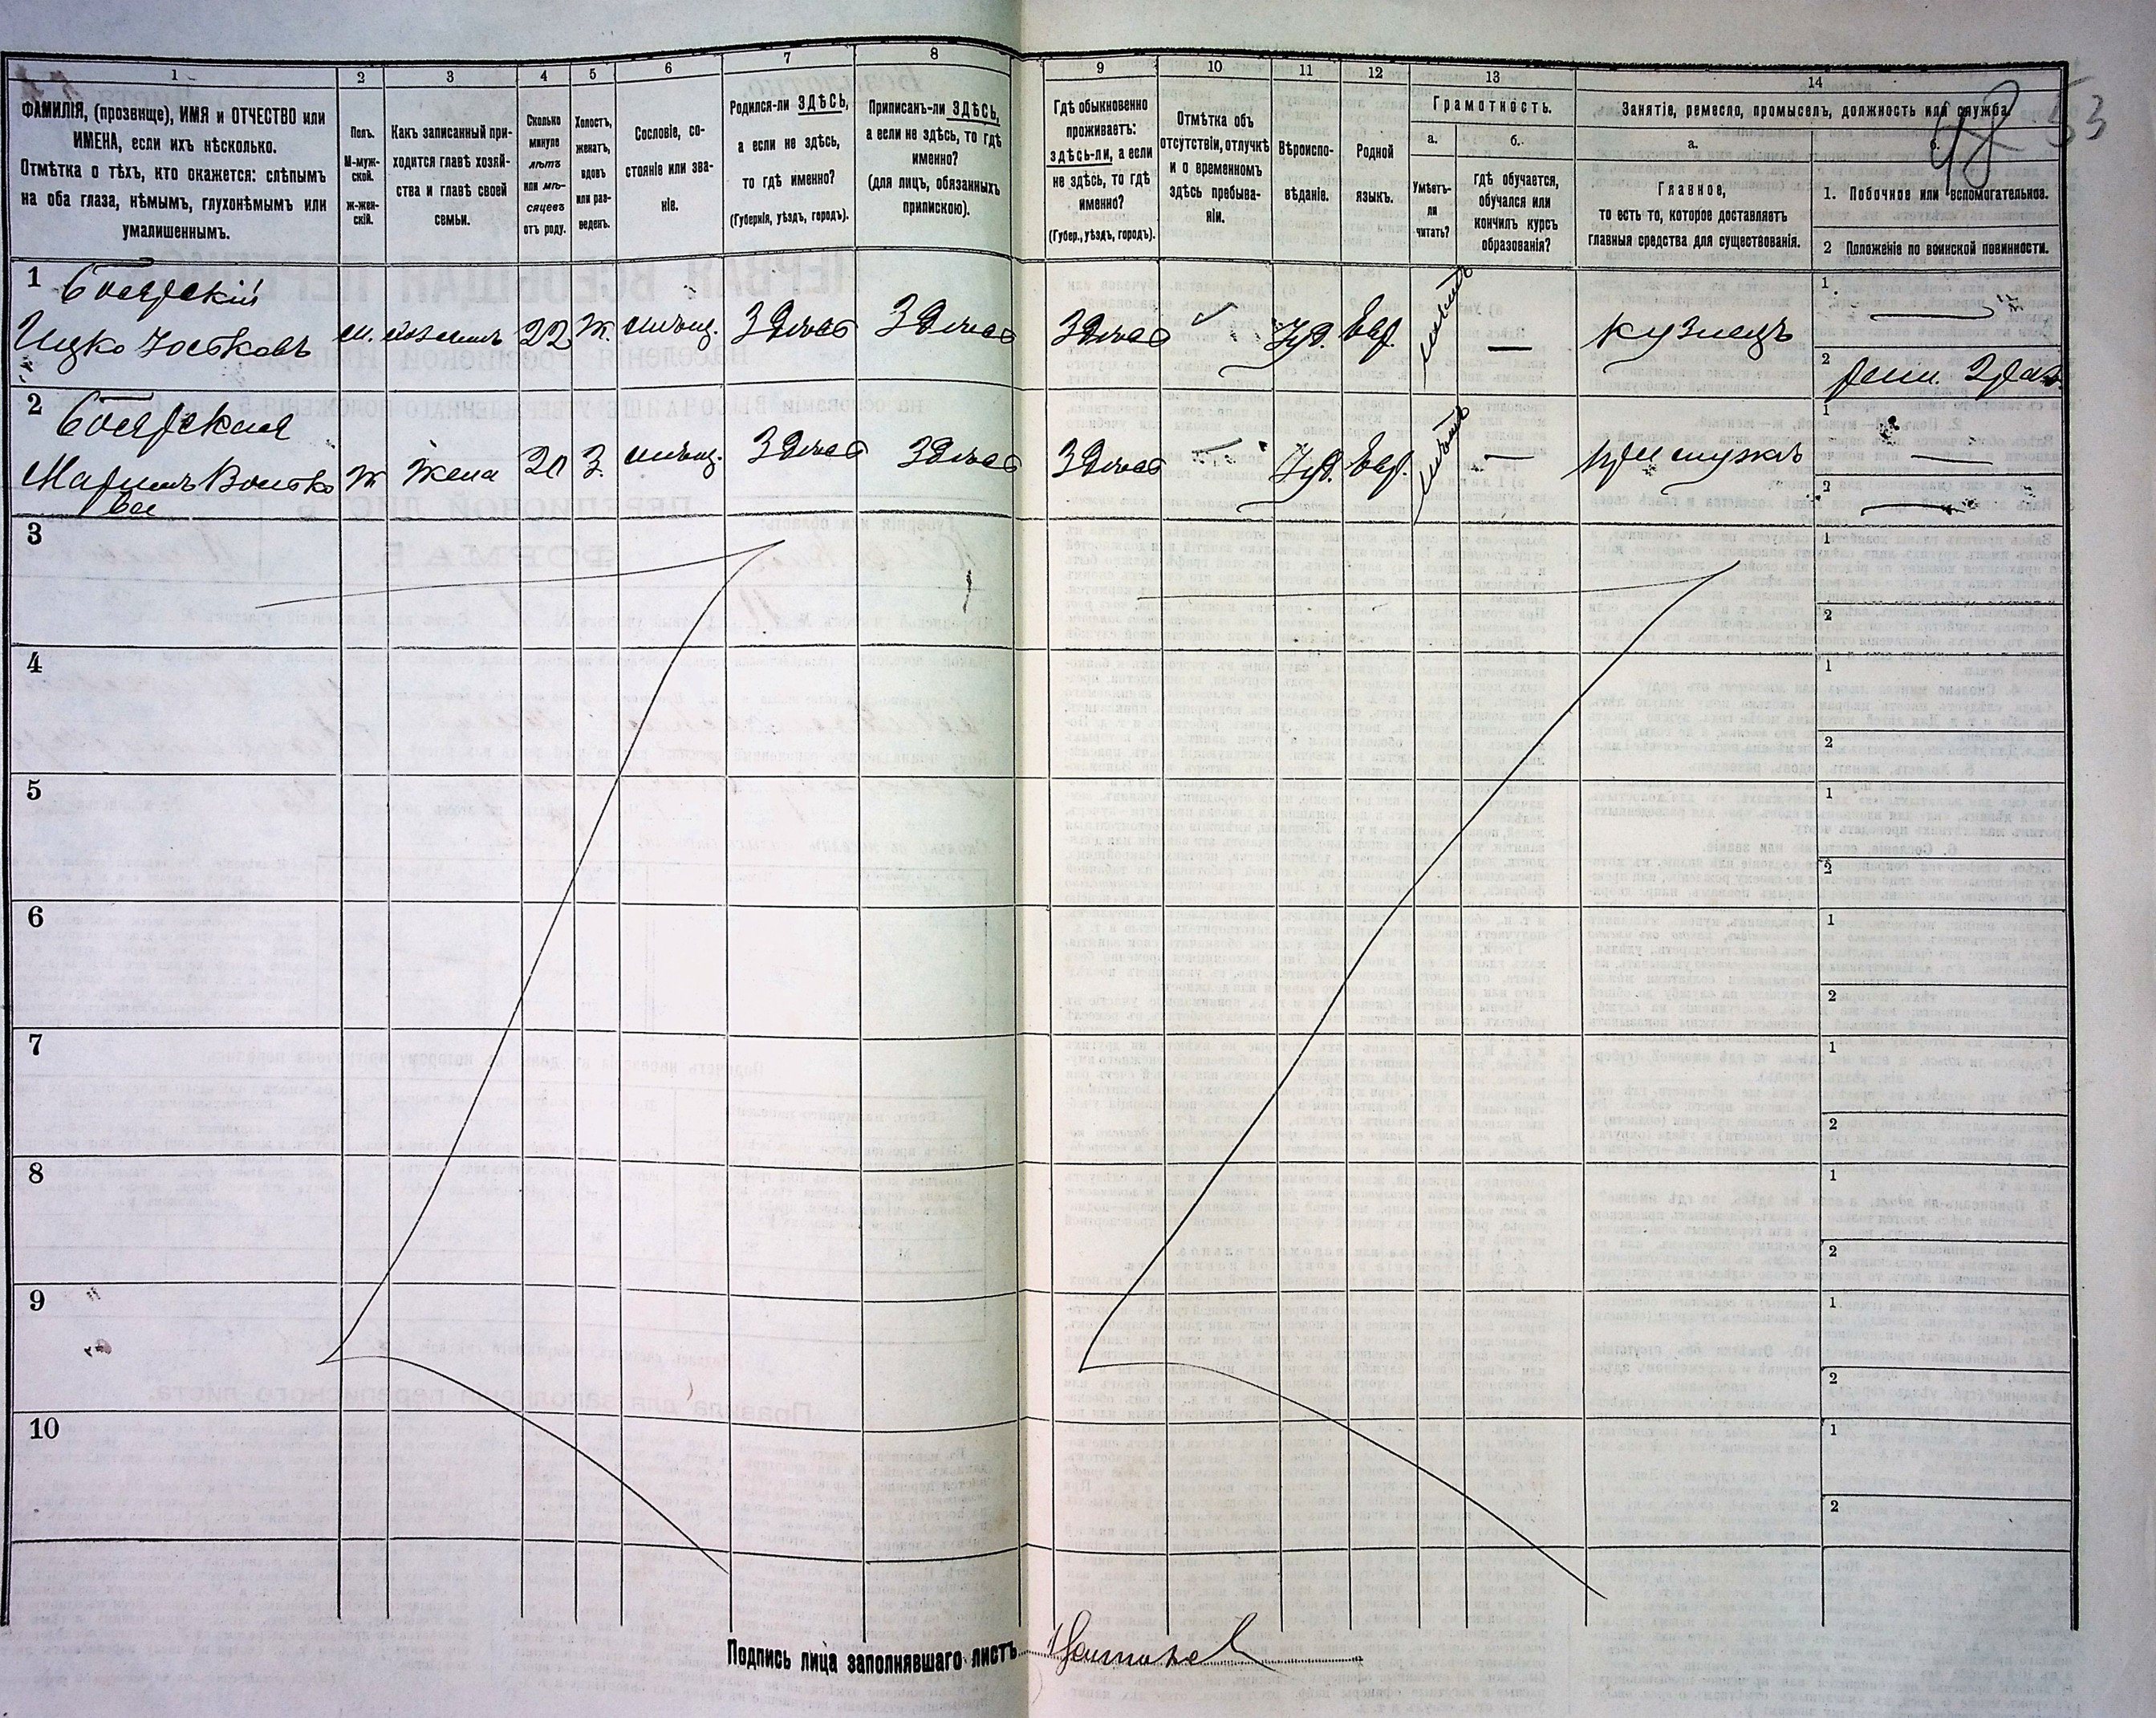 1 2 3 4 5 6 7 8 9 10 11 12 13 14
ФАМИЛІЯ, (прозвище), ИМЯ и ОТЧЕСТВО или
ИМЕНА, если ихъ нѣсколько.
Отмѣтка о тѣхъ, кто окажется: слѣпымъ
на оба глаза, нѣмымъ, глухонѣмымъ или
умалишеннымъ.
Полъ.
М-муж-
ской.
ж-жен-
скій.
Какъ записанный при-
ходится главѣ хозяй-
ства и главѣ своей
семьи.
Сколько
минуло
лѣтъ
или мѣ-
сяцевъ
отъ роду.
Холостъ,
женатъ,
вдовъ
или раз-
веденъ.
Сословіе, со-
стояніе или зва-
ніе.
Родился-ли ЗДѢСЬ,
а если не здѣсь,
то гдѣ именно?
(Губернія, уѣздъ, городъ).
Приписанъ-ли ЗДѢСЬ,
а если не здѣсь, то гдѣ
именно?
(для лицъ, обязанныхъ
припискою).
Гдѣ обыкновенно
проживаетъ:
здѣсь-ли, а если
не здѣсь, то гдѣ
именно?
(Губер., уѣздъ, городъ).
Отмѣтка объ
отсутствіи, отлучкѣ
и о временномъ
здѣсь пребыва-
ніи.
Вѣроиспо-
вѣданіе.
Родной
языкъ.
Грамотность.
а.
Умѣетъ-
ли
читать?
б.
гдѣ обучается,
обучался или
кончилъ курсъ
образованія?
Занятіе, ремесло, промыселъ, должность или служба.
48 53
а.
Главное,
то есть то, которое доставляетъ
главныя средства для существованія.
б.
1. Побочное или вспомогательное.
2 Положеніе по воинской повинности.
1 Боярскій
Ицко Іостковъ м. 22 ж. мѣщ. Здѣсь Здѣсь Здѣсь Іуд. Евр. — кузнецъ
1 —
2
2 Боярская
ж жена 20 З. мѣщ. Здѣсь Здѣсь Здѣсь Іуд. Евр. —
1 —
2 —
3 1
2
4 1
2
5 1
2
6 1
2
7 1
2
8 1
2
9 1
2
10 1
2
Подпись лица заполнявшаго листъ